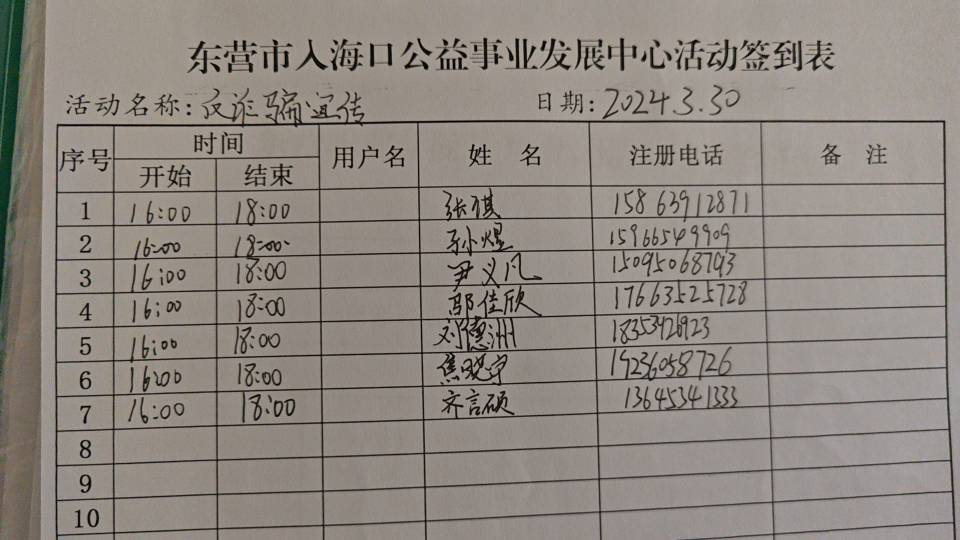 东营市入海口公益事业发展中心活动签到表
活动名称:反诈骗宣传 日期:2024.3.30
序号 时间 用户名 姓 名 注册电话 备 注
开始 结束
1 16:00 18:00 张祺 15863912871
2 16:00 18:00 孙煜 15966549909
3 16:00 18:00 尹义凡 15095068793
4 16:00 18:00 邬佳欣 17663525728
5 16:00 18:00 刘德洲
6 16:00 18:00 焦晓宇 19236058726
7 16:00 18:00 齐言硕 13645341333
8
9
10